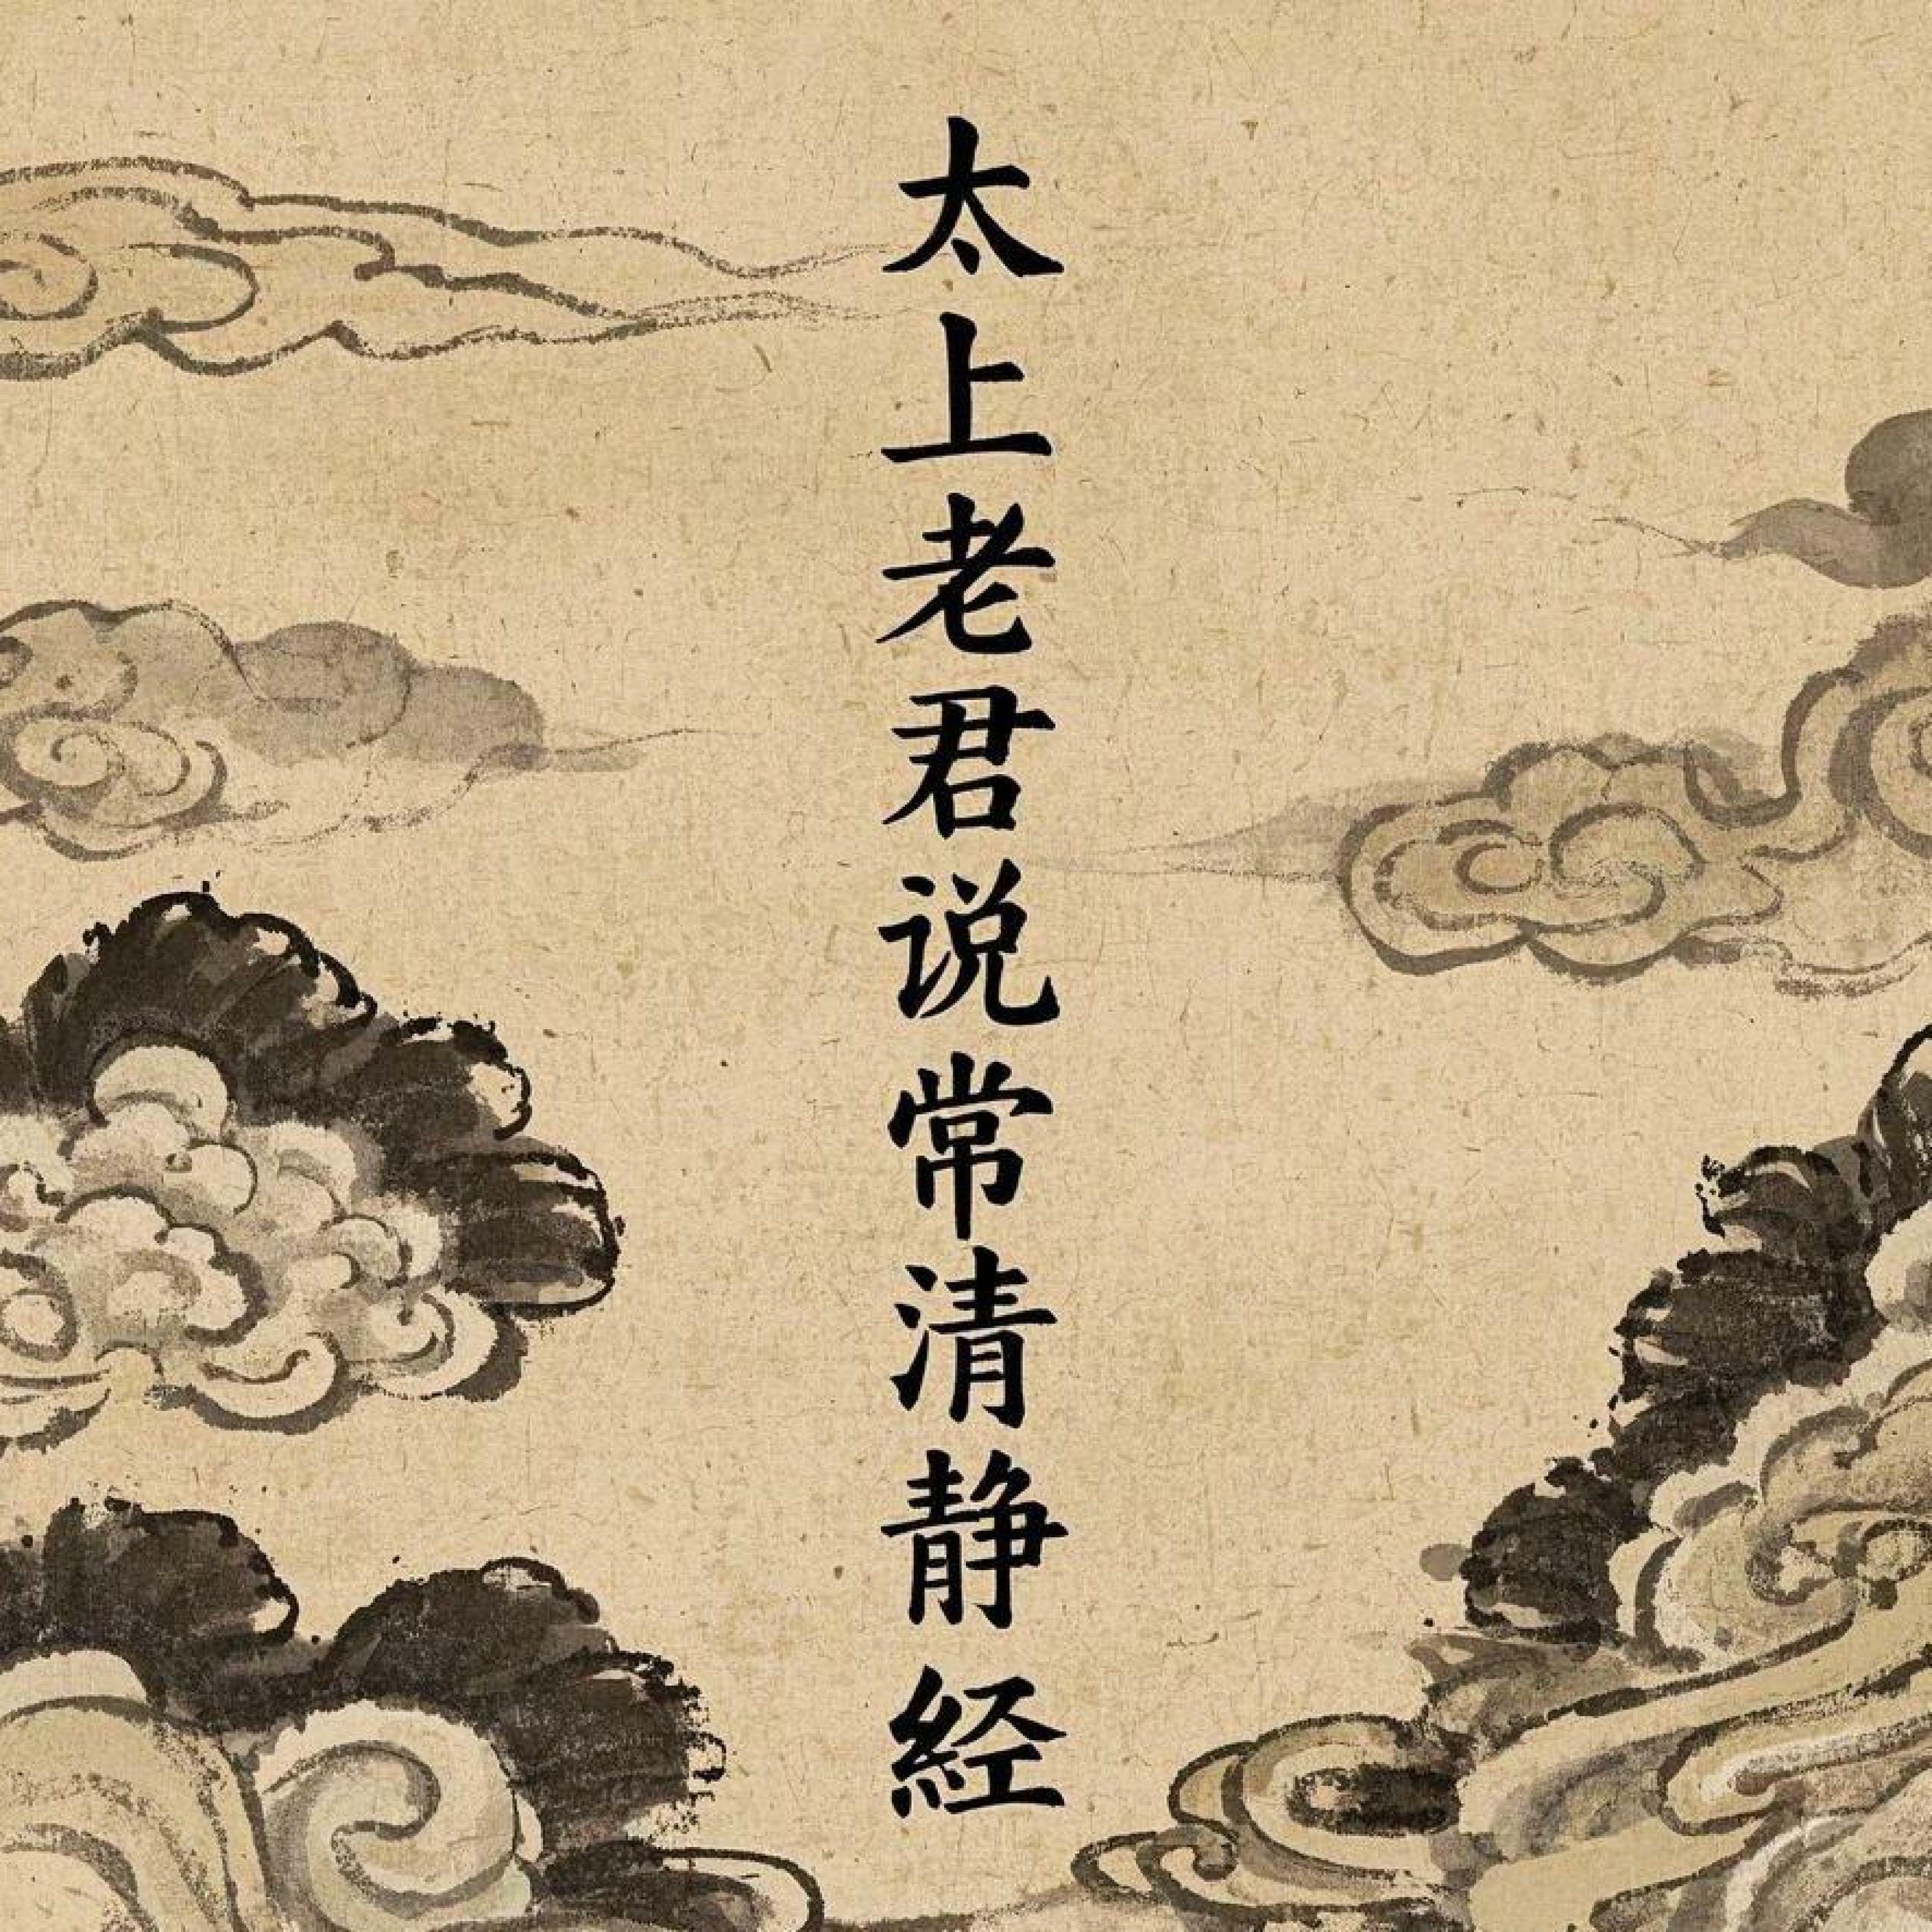 太上老君说常清静経